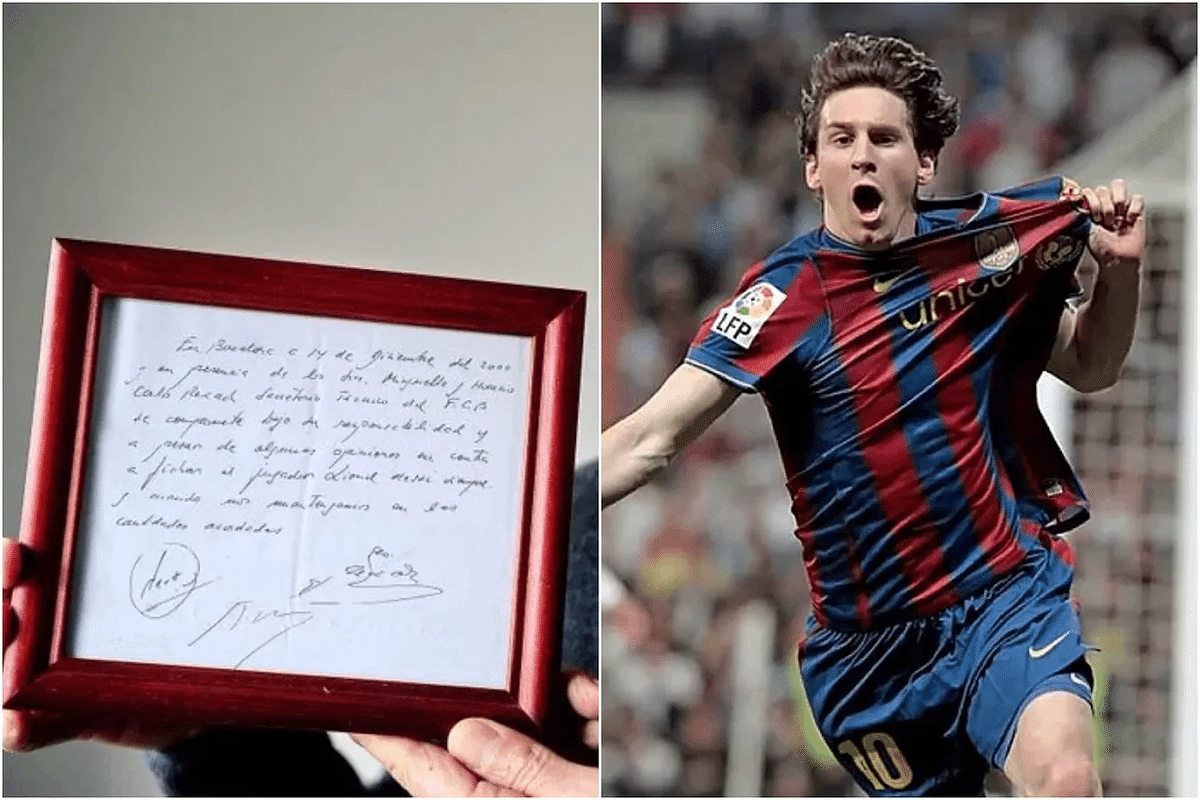 En Barcelona a 14 de diciembre del 2000
y en presencia de los Srs. Minguella y Horacio
Carlos Rexach Secretario Técnico del F.C.B
se compromete bajo su responsabilidad y
a pesar de algunas opiniones en contra
a fichar al jugador Lionel Messi siempre
y cuando nos mantengamos en las
cantidades acordadas
LFP
unicef
10